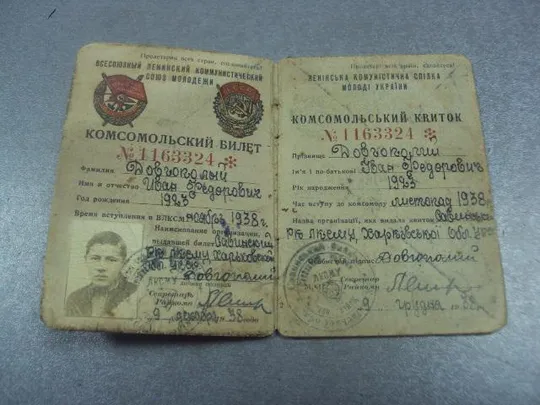 Пролетарі всіх країн, єднайтеся!
ВСЕСОЮЗНЫЙ ЛЕНИНСКИЙ КОММУНИСТИЧЕСКИЙ
СОЮЗ МОЛОДЕЖИ
КОМСОМОЛЬСКИЙ БИЛЕТ
№ 1163324 *
Фамилия Довгополый
Имя и отчество Иван Федорович
Год рождения 1923
Время вступления в ВЛКСМ ноябрь 1938 г.
Наименование организации,
выдавшей билет Савинский
РК ЛКСМУ Харьковской
Довгополий
Секретарь
Райкома
9 декабря 38
ЛЕНІНСЬКА КОМУНІСТИЧНА СПІЛКА
МОЛОДІ УКРАЇНИ
КОМСОМОЛЬСЬКИЙ КВИТОК
№ 1163324 *
Прізвище Довгополий
Ім'я і по-батькові Іван Федорович
Рік народження 1923
Час вступу до комсомолу листопад 1938
Назва організації, яка видала квиток
РК ЛКСМУ, Харківської Обл.
Особистий підпис Довгополий
Секретар
Райкому
9 грудня 38